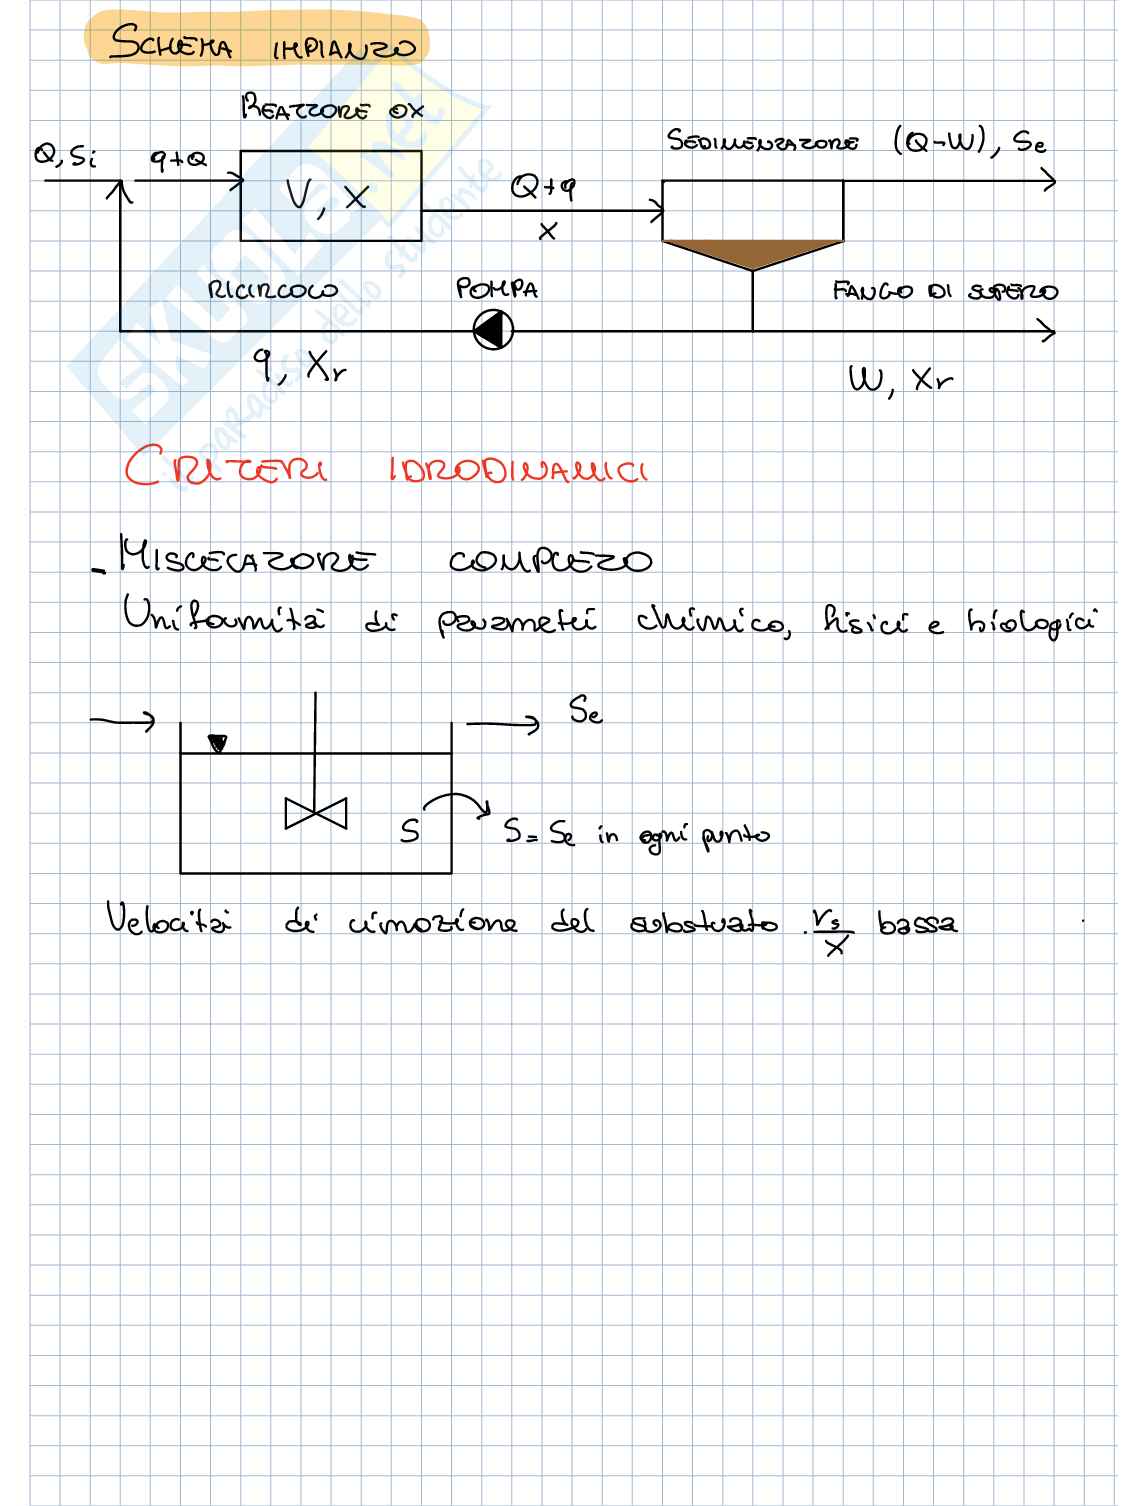 SCHEMA IMPIANTO
REATTORE OX
Q, Si
q+Q
V, X
Q+q
X
SEDIMENTATORE (Q-W), Se
RICIRCOLO
POMPA
FANGO DI SUPERO
q, Xr
W, Xr
CRITERI IDRODINAMICI
- MISCELATORE COMPLETO
Uniformità di parametri chimico, fisici e biologici
Se
S
S = Se in ogni punto
Velocità di rimozione del substrato rs/X bassa
SKUOLA.net
il paradiso dello studente